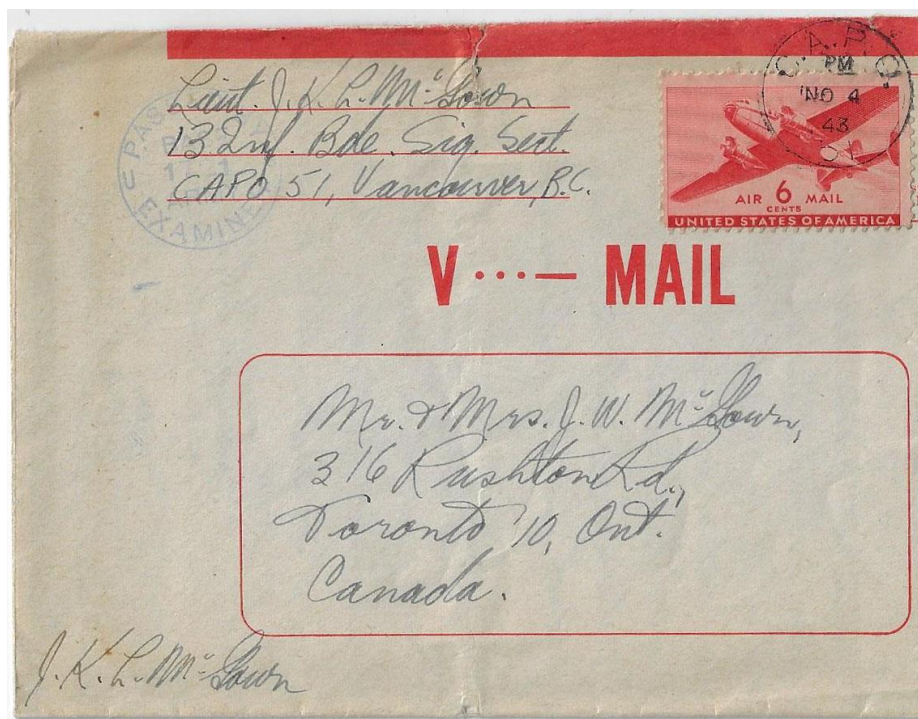 Lieut. J. K. L. McGown
132nd. Bde. Sig. Sect.
CAPO 51, Vancouver, B.C.
PAS
EXAMINE
C.A.P.O.
PM
NO 4
43
AIR 6 MAIL
CENTS
UNITED STATES OF AMERICA
V ···— MAIL
Mr. & Mrs. J. W. McGown,
316 Rushton Rd.,
Toronto 10, Ont.
Canada.
J. K. L. McGown